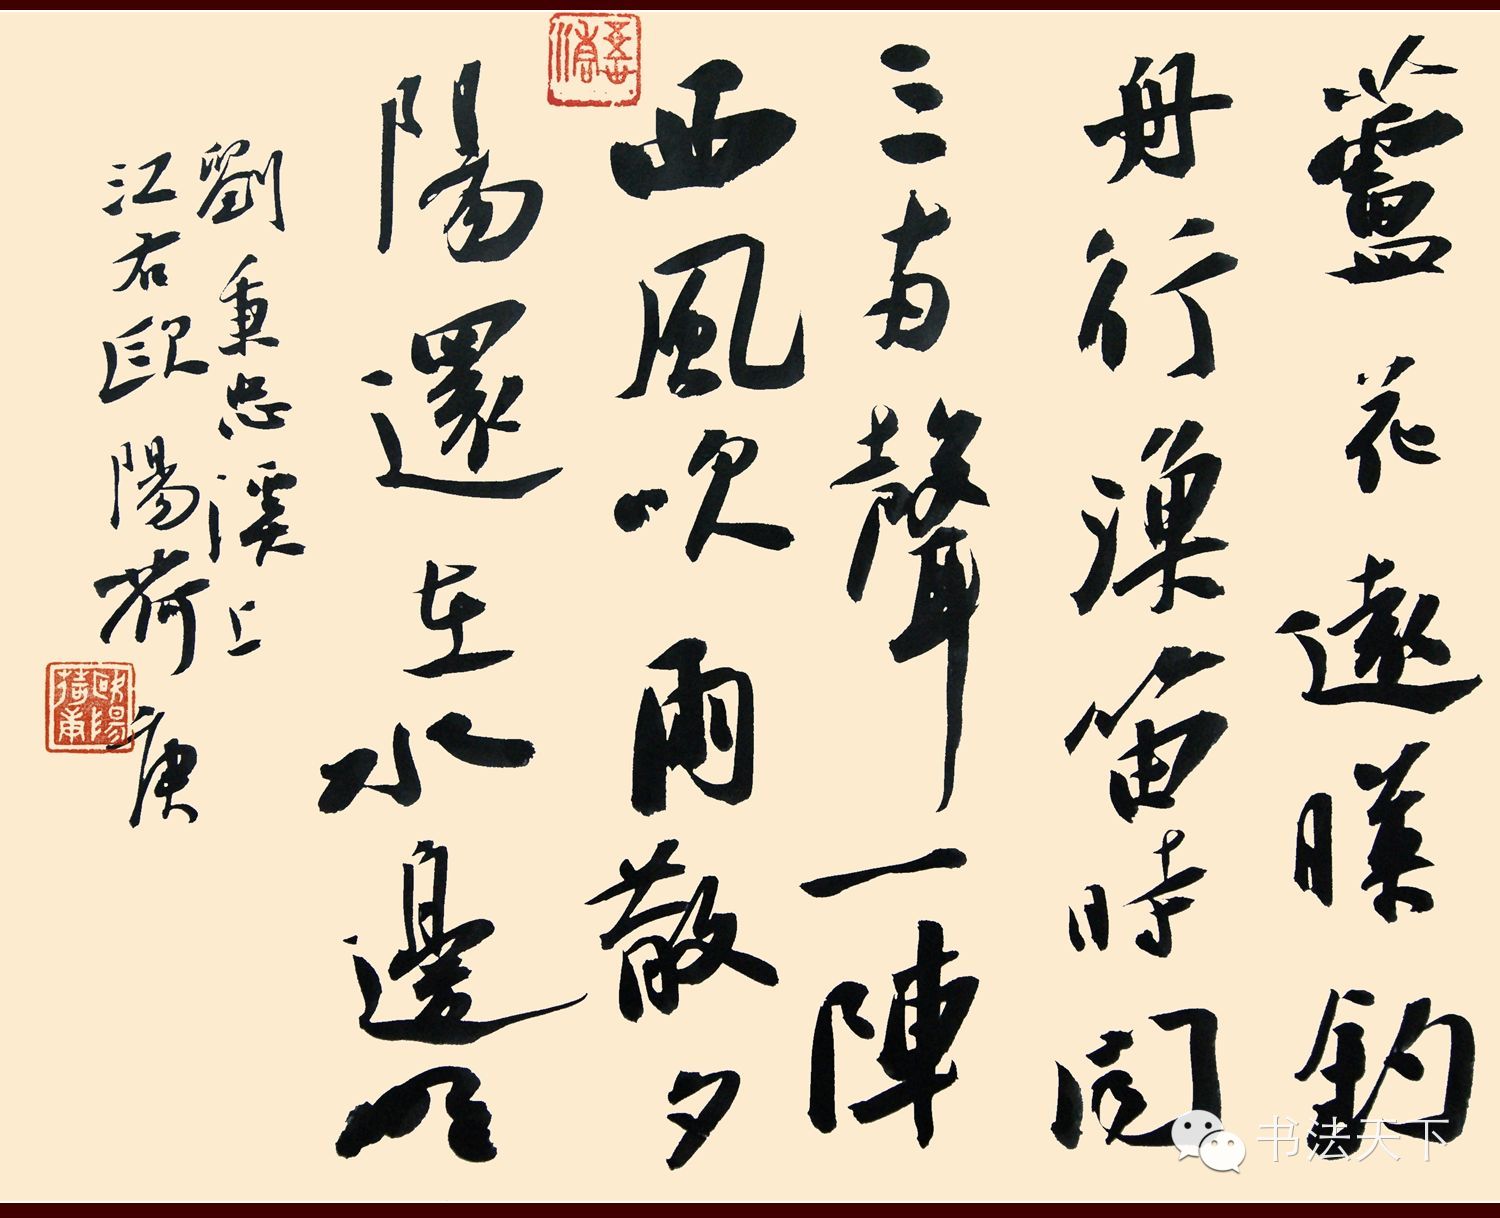 蘆花遠暎釣
舟行漁笛時聞
三两聲一陣
西風吹雨散夕
陽還在水邊明
劉秉忠溪上
江右歐陽荷庚
歐陽荷庚
书法天下